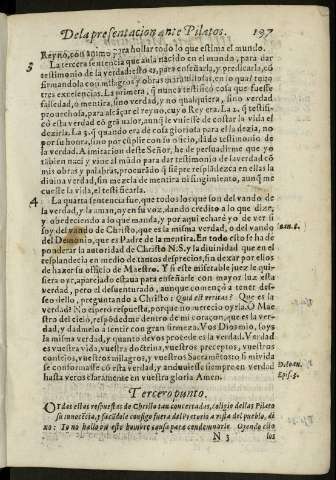 De la presentacion ante Pilatos. 197
Reyno, con animo para hollar todo lo que estima el mundo.
3 La tercera sentencia que auia nacido en el mundo, para dar
testimonio de la verdad: esto es, para enseñarla, y predicarla, cō
firmandola con milagros y obras marauillosas, en lo qual tuuo
tres excelencias. La primera, q̃ nunca testificò cosa que fuesse
falsedad, o mentira, sino verdad, y no qualquiera, sino verdad
prouechosa, para alcāçar el reyno, cuyo Rey era. La 2. q̃ testifi-
cò esta verdad cō grā valor, aunq̃ le vuiesse de costar la vida el
dezirla. La 3. q̃ quando era de cosa gloriosa para el la dezia, no
por su honra, sino por cūplir con su oficio, dādo testimonio de
la verdad. A imitacion deste Señor, he de persuadirme que yo
tābien naci y vine al mūdo para dar testimonio de la verdad cō
mis obras y palabras, procurādo q̃ siempre resplādezca en ellas la
diuina verdad, sin mezcla de mentira ni fingimiento, aunq̃ me
cueste la vida, el testificarla.
4 La quarta sentencia fue, que todos los que son del vando de
la verdad, y la aman, oyen su voz, dando credito a lo que dize,
y obedeciendo a lo que manda, y por aqui echarè yo de ver si
soy del vando de Christo, que es la misma verdad, o del vando
del Demonio, que es Padre de la mentira. En todo esto se ha de
ponderar la autoridad de Christo N.S. y la diuinidad que en el
resplandecia en medio de tantos desprecios, sin dexar por ellos
de hazer su officio de Maestro. Y si este miserable juez le qui-
siera oyr, aparejado estaua para enseñarle con mayor luz esta
verdad, pero el desuenturado, aunque començò a tener def-
seo dello, preguntando a Christo: Quid est veritas? Que es la
verdad? No esperò respuesta, porque no merecio oyrla. O Mae-
stro del cielo, respōdedme dentro de mi coraçon, que es la ver-
dad, y dadmelo a sentir con gran firmeza. Vos Dios mio, soys
la misma verdad, y quanto de vos procede es la verdad. Verdad
es vuestra vida, vuestra doctrina, vuestros preceptos, vuestros
consejos, vuestros milagros, y vuestros Sacramētos: o si mi vida
se conformasse cō esta verdad, y anduuiesse siempre en verdad
hasta veros claramente en vuestra gloria Amen.
Ioan. 8.
Epist. 3.
Tercero punto.
OIdas estas respuestas de Christo tan concertadas, coligio dellas Pilato
su innocēcia, y sacādole consigo fuera del Pretorio a vista del pueblo, di
xo: Yo no hallo en este hombre causa para condenarle. Oyendo esto
N 3 los